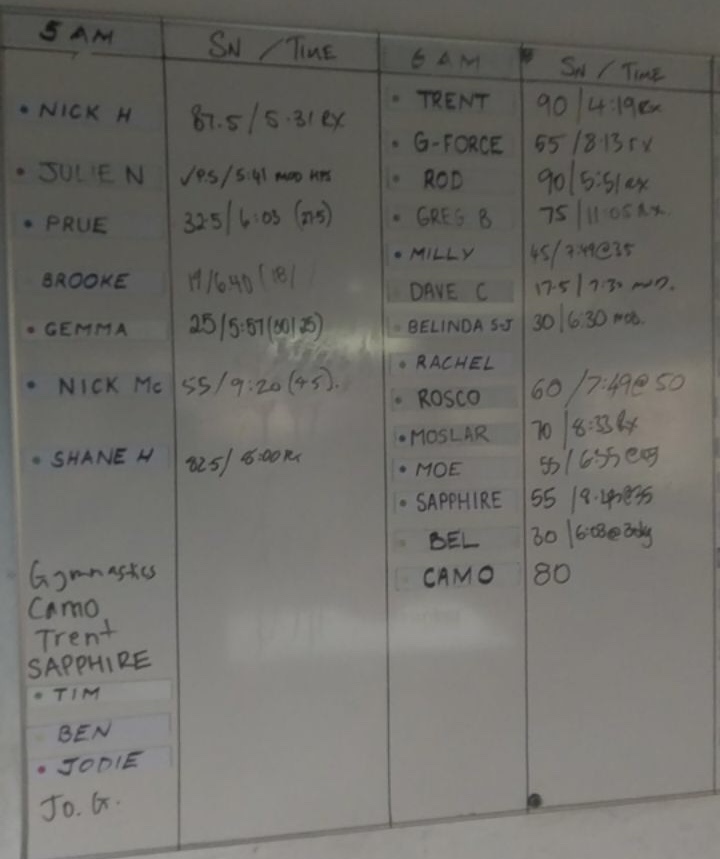 5 AM
SN / TIME
NICK H
87.5 / 5.31 RX
JULIE N
/ 5:41 MOD
PRUE
32.5 / 6:03 (27.5)
BROOKE
19/6.40 (18/
GEMMA
25/5:57 (30/25)
NICK Mc
55/9:20 (45).
SHANE H
82.5/ 8:00 RX
Gymnastics
Camo
Trent
SAPPHIRE
TIM
BEN
JODIE
Jo. G.
6 AM
SN / TIME
TRENT
90 / 4:19 RX
G-FORCE
55 / 8:13 rx
ROD
90 / 5:51 RX
GREG B
75 / 11:05 RX.
MILLY
45/ 7:49@35
DAVE C
17.5 / 7:32 MOD.
BELINDA S-J
30 / 6:30 MOD.
RACHEL
ROSCO
60 / 7:49@ 50
MOSLAR
70 / 8:33 RX
MOE
55 /
SAPPHIRE
55 /
BEL
30 / 6:08@
CAMO
80